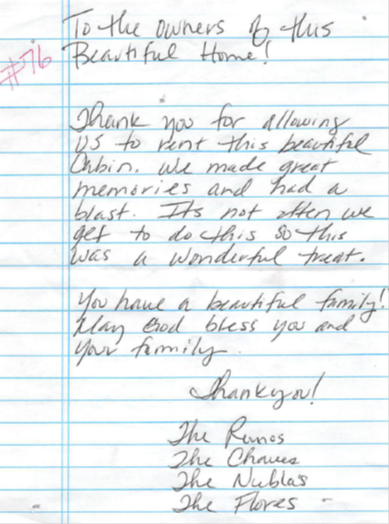 To the owners of this
Beautiful Home!
#76
Thank you for allowing
US to rent this beautiful
Cabin. We made great
memories and had a
blast. Its not often we
get to do this so this
was a wonderful treat.
You have a beautiful family!
May God bless you and
your family.
Thankyou!
The
The
The Nublas
The Flores